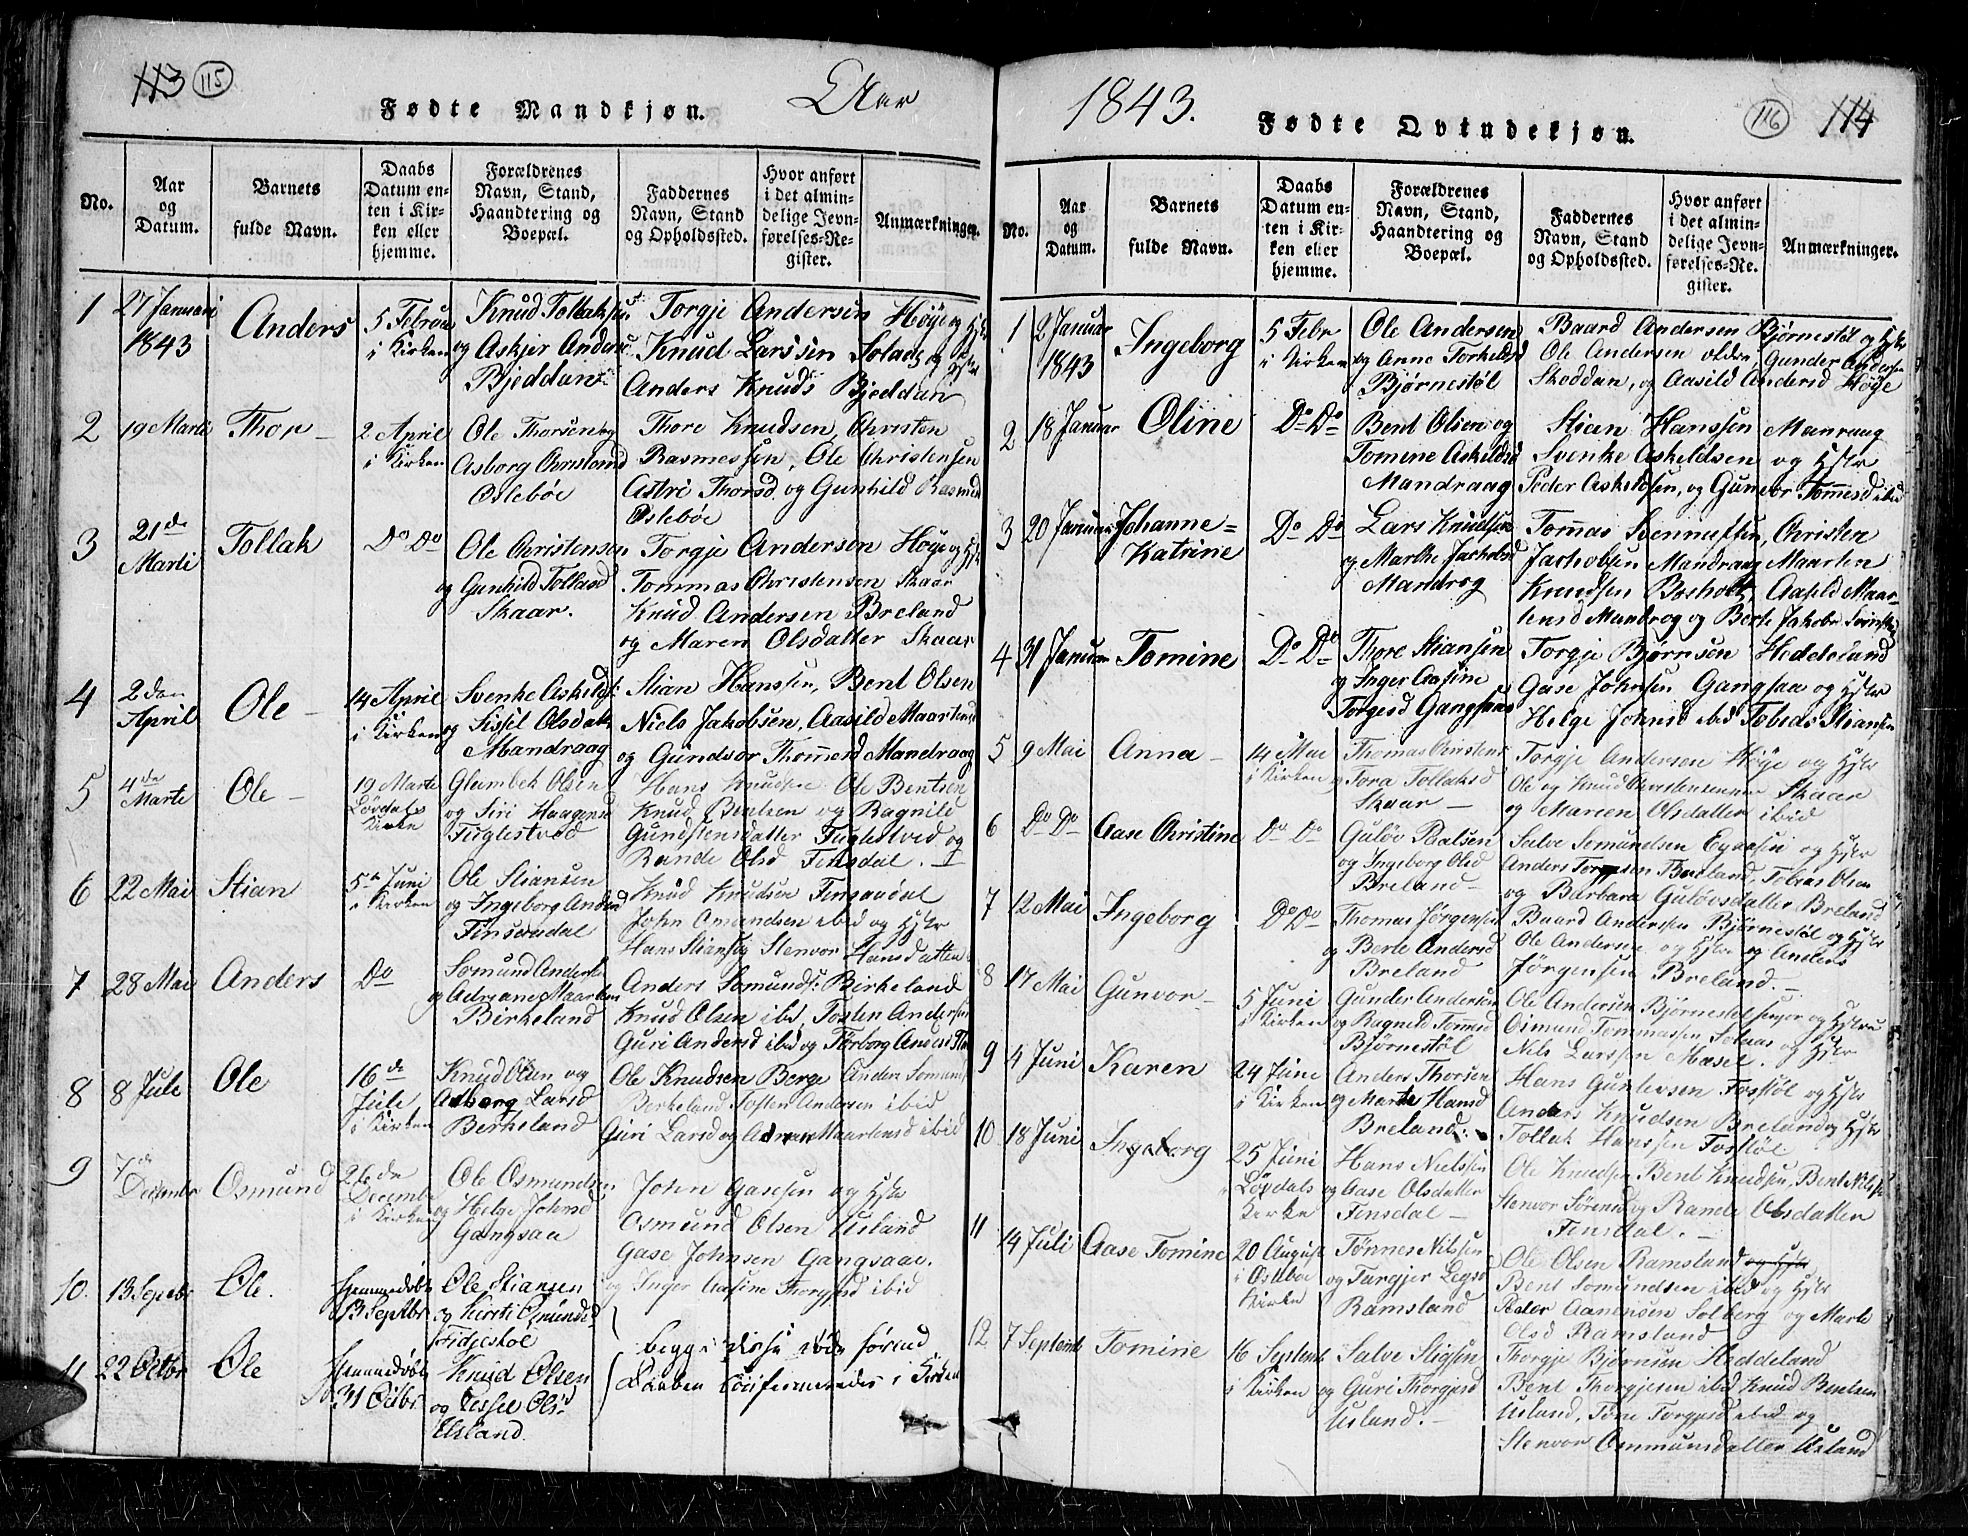 113 115
Fødte Mandkjøn. Aar
No.
Aar
og
Datum.
Barnets
fulde Navn.
Daabs
Datum en-
ten i Kir-
ken eller
hjemme.
Forældrenes
Navn, Stand,
Haandtering og
Boepæl.
Faddernes
Navn, Stand
og Opholdssted.
Hvor anført
i det almin-
delige Jevn-
førelses-Re-
gister.
Anmærkninger.
1
27 Januari
1843
Anders
5 Februar
i Kirken
Knud Tollaksen
og Askjer Anders
Bjeddan
Torgje Andersen Høye og Hstr
Knud Larssen Solaas og Hstr
Anders Knuds Bjeddan
2
19 Marti
Thor
2 April
i Kirken
Ole Thorsen og
Asborg Christensd
Oslebøe
Thore Knudsen, Christen
Rasmussen, Ole Christensen
Astri Thorsd og Gunhild Rasmusd
Oslebøe
3
21de
Marti
Tollak
Do Do
Ole Christensen
og Gunhild Tollasd
Skaar.
Torgje Andersen Høye og Hstr
Tommas Christensen Skaar
Knud Andersen Breland
og Maren Olsdatter Skaar
4
2den
April
Ole
14 April
i Kirken
Svenke Askelds:
og Sissil Olsdatr
Mandraag
Stian Hanssen, Bent Olsen
Niels Jakobsen, Aasild Maartensd
og Gundvor Thommesd Mandraag
5
4de
Marte
Ole
19 Marte
Løvdals
Kirke
Glambek Olsen
og Siri Haagensd
Fuglestved
Hans Knudsen Ole Bentsen
Knud Bentsen og Ragnild
Gundstensdatter Fuglestved og
Rande Olsd Finsdal.
6
22 Mai
Stian
5te Juni
i Kirken
Ole Stiansen
og Ingeborg Andersd
Finsaadal
Knud Knudsen Finsaadal
John Amandsen ibid og Hstr
Hans Stiansen Stenvor Hansdatter
7
28 Mai
Anders
Do
Somund Anders
og Adriane Maartens
Birkeland
Anders Somunds: Birkeland
Knud Olsen ibd, Tosten Andersen
Guri Andersd ibid og Torborg Andersd
8
8 Jule
Ole
16de
Jule
i Kirken
Knud Olsen og
Asborg Larsd
Berkeland
Ole Knudsen Berge Anders Somunds
Berkeland Tosten Andersen ibid
Guri Larsd og Adriane Maartensd ibid
9
7de
December
Osmund
26de
Decembr
i Kirken
Ole Osmundsen
og Helge Johnsd
Gangsaa
John Gasesen og Hstr
Osmund Olsen Usland
Gase Johnsen Gangsaae.
og Inger Aasine Thorgjesd ibid
10.
13 Septbr
Ole.
Hjemmedøbt
13 Septbr
Ole Stiansen
og Kirsti Osmundsd
Fidjestøl
11
22 Octbr
Ole
Hjemmedøbt
31 Octbr
Knud Olsen
og Sissel Ols:
Usland.
Begge disse døde førend
Daaben confirmeredes i Kirken
1843.
Fødte Qvindekjøn.
116 114
No.
Aar
og
Datum.
Barnets
fulde Navn.
Daabs
Datum en-
ten i Kir-
ken eller
hjemme.
Forældrenes
Navn, Stand,
Haandtering og
Boepæl.
Faddernes
Navn, Stand
og Opholdssted.
Hvor anført
i det almin-
delige Jevn-
førelses-Re-
gister.
Anmærkninger.
1
2 Januar
1843
Ingeborg
5 Febr
i Kirken
Ole Andersen
og Anne Torkelsd
Bjørnestøl
Baard Andersen Bjørnestøl og Hstr
Ole Andersen older Gunder Andersen
Skoddan, og Aasild Andersd Høye
2
18 Januar
Oline
Do Do
Bent Olsen og
Tomine Askeldsd
Mandraag
Stian Hanssen Manraag
Svenke Askeldsen og Hstr
Peder Askeldsen, og Gunvor Tomesd ibid
3
20 Januar
Johanne=
Katrine
Do Do
Lars Knudsen
og Marthe Jachobsd
Mandrog
Tomas Svennussen, Christen
Jachobsen Mandraag Maarten
Knudsen Bosholt, Aasild Maar-
tensd Mandrog og Berte Jakobsd
4
31 Januar
Tomine
Do Do
Thore Stiansen
og Inger Aasine
Torgesd Gangsaas
Torgje Bjørnsen Heddeland
Gase Johnsen Gangsaa og Hstr
Helge Johnsd ibid Tobias Stiansen
5
9 Mai
Anna
14 Mai
i Kirken
Thomas Christens
og Tora Tollaksd
Skaar
Torgje Andersen Høye og Hstr
Ole og Knud Christensenner Skaar
og Mareen Olsdatter ibid
6
Do Do
Aase Christine
Do Do
Guløv Paalsen
og Ingeborg Olsd
Breland
Salve Semundsen Eynesen og Hstr
Anders Torgesen Breland, Tobias Olsen
og Barbara Guløvsdatter Breland
7
12 Mai
Ingeborg
Do Do
Thomas Jørgensen
og Berte Andersd
Breland
Baard Anderssen Bjørnestøl og Hstr
Ole Andersen og Hstr og Anders
Jørgensen Breland.
8
17 Mai
Gunvor
5 Juni
i Kirken
Gunder Andersen
og Ragnild Tomesd
Bjørnestøl
Ole Andersen Bjørnestøl senjor og Hstru
Osmund Tommassen Solaas og Hstr
Nils Larssen Mæsel.
9
4 Juni
Karen
24 Juni
i Kirken
Anders Thorsen
og Marte Hansd
Breland
Hans Guntersen Fosstøl og Hstr
Anders Knudsen Breland og Hstr
Tollak Hanssen Fosstøl
10
18 Juni
Ingeborg
25 Juni
i Løvdals
Kirke
Hans Nielssen
og Aase Olsdatter
Finsdal
Ole Knudsen Bent Knudsen, Bent Nilss
Stenvor Sørensd og Rande Olsdatter
Finsdal.
11
14 Juli
Aase Tomine
20 August
i Oslebøe
Kirke
Tønnes Nilssen
og Turgjer Legsd
Ramsland
Ole Olsen Ramsland og Hstr
Bent Somundsen ibid og Hstr
Peder Aanensen Solberg og Marte
Olsd Ramsland
12
7 Septemb
Tomine
16 Septemb
i Kirken
Salve Stigsen
og Guri Thorgjesd
Usland.
Thorgje Bjørnsen Heddeland
Bent Thorgjesen ibid Knud Bentsen
Usland, Tone Torgjesd ibid og
Stenvor Ommundsdatter Usland